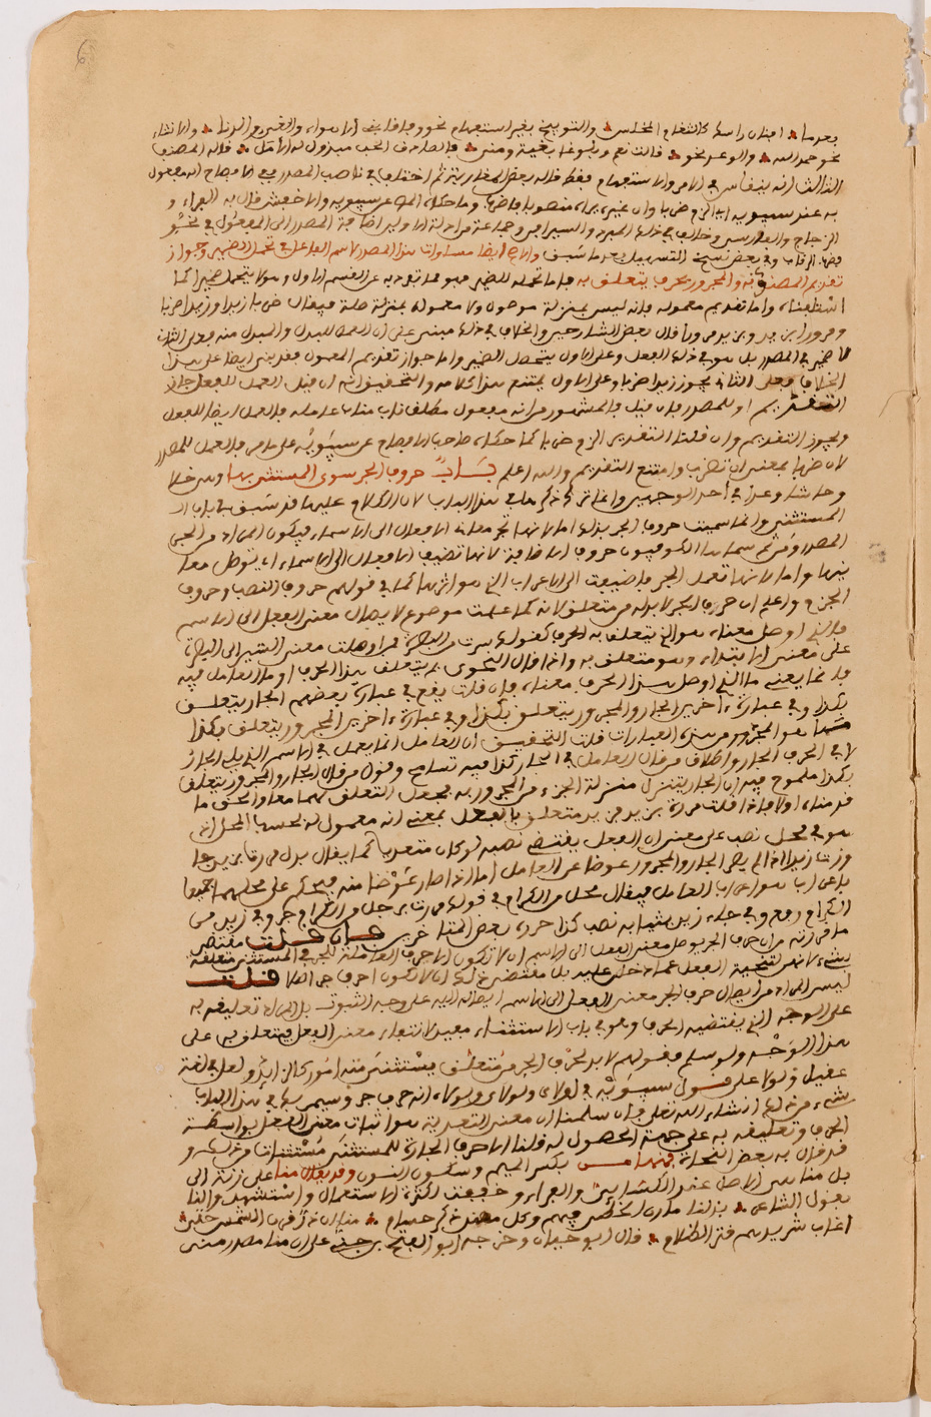 بعد ما افنان راسك كالثغام المخلس والتوبيخ بغير استفهام نحو وفاقا بني الاهواء والغي والونا والانشاء
نحو حمدا لله والوعد نحو قالت نعم وبلوغا بغية ومنى فالصادق الحب مبذول له الامل قاله المصنف
الثالث انه ينقاس في الامر والاستفهام فقط قاله بعض المغاربة ثم اختلف في ناصب المصدر ففي الافصاح انه مفعول
به عند سيبويه اي الزم ضربا وان غيره يراه منصوبا وما حكاه عن سيبويه والاخفش قال به الفراء و
الزجاج والفارسي وخالف في ذلك المبرد والسيرافي وجماعة
فضرب الرقاب وفي بعض نسخ التسهيل بعد ما سبق والاصح ايضا مساواة هذا المصدر لاسم الفاعل في تحمل الضمير وجواز
تقديم المنصوب به والمجرور بحرف يتعلق به فاما تحمله للضمير فهو مما تفرد به عن القسم الاول وهو لا يتحمل ضميرا كما
اسلفناه واما تقديم معموله فلانه ليس بمنزلة موصول ولا معموله بمنزلة صلة فيقال ضربا زيدا وزيدا ضربا
ومرورا بزيد وبزيد مرورا قال بعض الشارحين والخلاف في ذلك مبني على ان العمل للبدل والمبدل منه فعلى الثاني
لا ضمير في المصدر بل هو في ذلك الفعل وعلى الاول يتحمل الضمير واما جواز تقديم المعمول فقد بني ايضا على هذا
الخلاف فعلى الثاني يجوز زيدا ضربا وعلى الاول يمتنع هذا كلامه والتحقيق انه ان قيل العمل للفعل جاز
التقديم او للمصدر فان قيل بالمشهور من انه مفعول مطلق ناب مناب عامله فالعمل ايضا للفعل
ويجوز التقديم وان قلنا التقدير الزم ضربا كما حكاه صاحب الافصاح عن سيبويه على ما مر فالعمل للمصدر
لانه ضربا بمعنى ان تضرب وامتنع التقديم والله اعلم باب حروف الجر سوى المستثنى بها وهي خلا
وحاشا وعدا في احد الوجهين وانما ترك ذكرها في هذا الباب لان الكلام عليها قد سبق في باب
المستثنى وانما سميت حروف الجر بذلك اما لانها تجر معاني الافعال الى الاسماء فيكون المراد من الجر
المصدر ومن ثم سماها الكوفيون حروف الاضافة لانها تضيف الافعال الى الاسماء اي توصل معنا
ينها واما لانها تعمل الجر فاضيفت الى الاعراب الذي هو اثرها كما في قولهم حروف النصب وحروف
الجزم واعلم ان حرف الجر لا بد له من متعلق لانه كما علمت موضوع لايصال معنى الفعل الى الاسم
فالذي اوصل معناه هو الذي يتعلق به الحرف كقولك سرت من البصرة فمن اوصلت معنى السير الى البصرة
على معنى الابتداء وهو متعلق به واذا قال النحوي بم يتعلق هذا الحرف او ما العامل فيه
فانما يعني ما الذي اوصل هذا الحرف معناه فان قلت يقع في عبارة بعضهم الجار يتعلق
بكذا وفي عبارة اخرى الجار والمجرور يتعلق بكذا وفي عبارة اخرى المجرور يتعلق بكذا
فما هو المحرر من هذه العبارات قلت التحقيق ان العامل انما يعمل في الاسم الذي يلي الجار
لا في الحرف الجار واطلاق من قال العامل في الجار كذا فيه تسامح وقول من قال الجار والمجرور يتعلق
بكذا ملموح فيه ان الجار يتنزل منزلة الجزء من المجرور به فجعل التعلق لهما معا والحق ما
قدمناه اولا فاذا قلت مررت بزيد فزيد متعلق بالفعل بمعنى انه معمول له بحسب المحل اذ
هو في محل نصب على معنى ان الفعل يقتضي نصبه لو كان متعديا كما يقال بدل مررت بزيد جا
وزت زيدا اذا لم يصر الجار والمجرور عوضا عن العامل اما اذا صار عوضا منه فيحكم على محلهما جميعا
باعراب هو اعراب العامل فيقال محل من الكرام في قولك مررت برجل من الكرام جر وفي زيد من
الكرام رفع وفي جاء زيد بثيابه نصب كذا حرره بعض المتاخرين فان قلت مقتضى
ما مر انه من ان حرف الجر يوصل معنى الفعل الى الاسم ان لا تكون الاحرف العاملة للجر في المستثنى متعلقة
بشيء لانهن لتنحية الفعل عما دخلن عليه بل مقتضى ذلك ان لا تكون احرف جر اصلا قلت
ليس المراد من ايصال حرف الجر معنى الفعل الى الاسم ايصاله اليه على وجه الثبوت بل المراد تعليقه به
على الوجه الذي يقتضيه الحرف وهو في باب الاستثناء مفيد لانتفاء معنى الفعل فيتعلق به على
هذا الوجه ولو سلم فقولهم لا بد لحرف الجر من متعلق يستثنى منه امور كالزائد ولعل في لغة
عقيل ولولا على قول سيبويه في لولاي ولولاك ولولاه انه حرف جر وسيمر بك في هذا الباب
شيء من ذلك ان شاء الله تعالى فان سلمنا ان معنى التعدية هو اثبات معنى الفعل بواسطة
الحرف وتعليقه به على جهة الحصول له قلنا الاحرف الجارة للمستثنى مستثنيات من ذلك و
قد قال به بعض النحاة فمنها من بكسر الميم وسكون النون وقد يقال منا على زنة الى
بل منا هي الاصل عند الكسائي والفراء وخففت لكثرة الاستعمال واستشهد والنا
بقول الشاعر بذلنا مارن الخطي فيهم وكل مهند ذكر حسام منا ان ذر قرن الشمس حتى
اغاب شريدهم قتر الظلام قال ابو حيان وخرجه ابو الفتح بن جني على ان منا مصدر منى